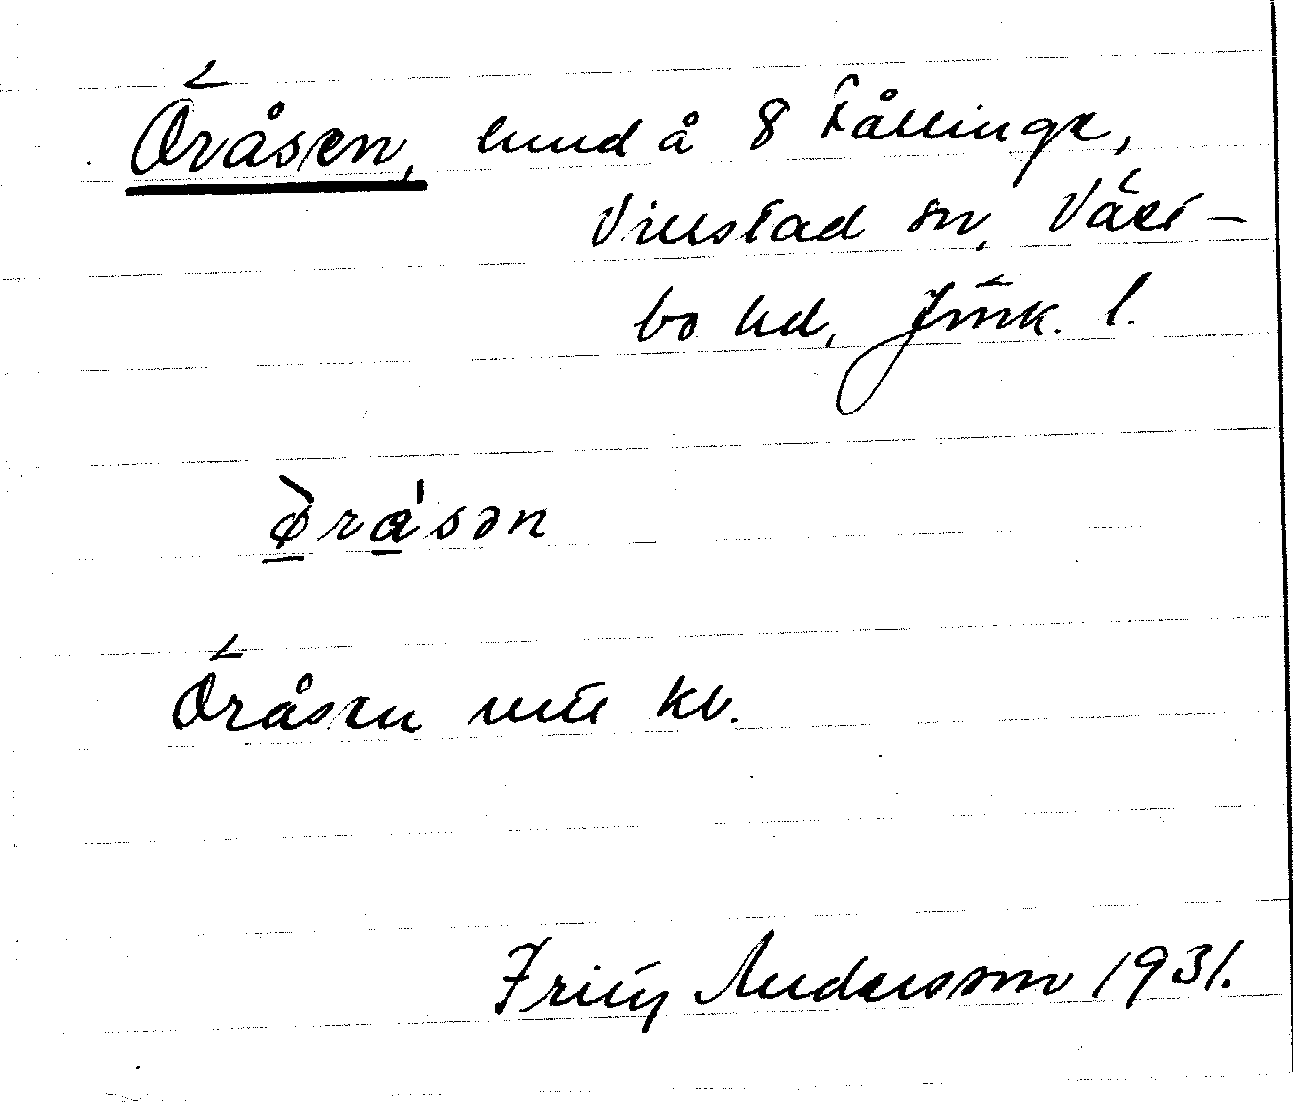 Öråsen, lund å 8 Kållinge,
Villstad sn, Väst-
bo hd, Jönk. l.
Ø̀rá'sən
Öråsen
Fritz Andersson 1931.